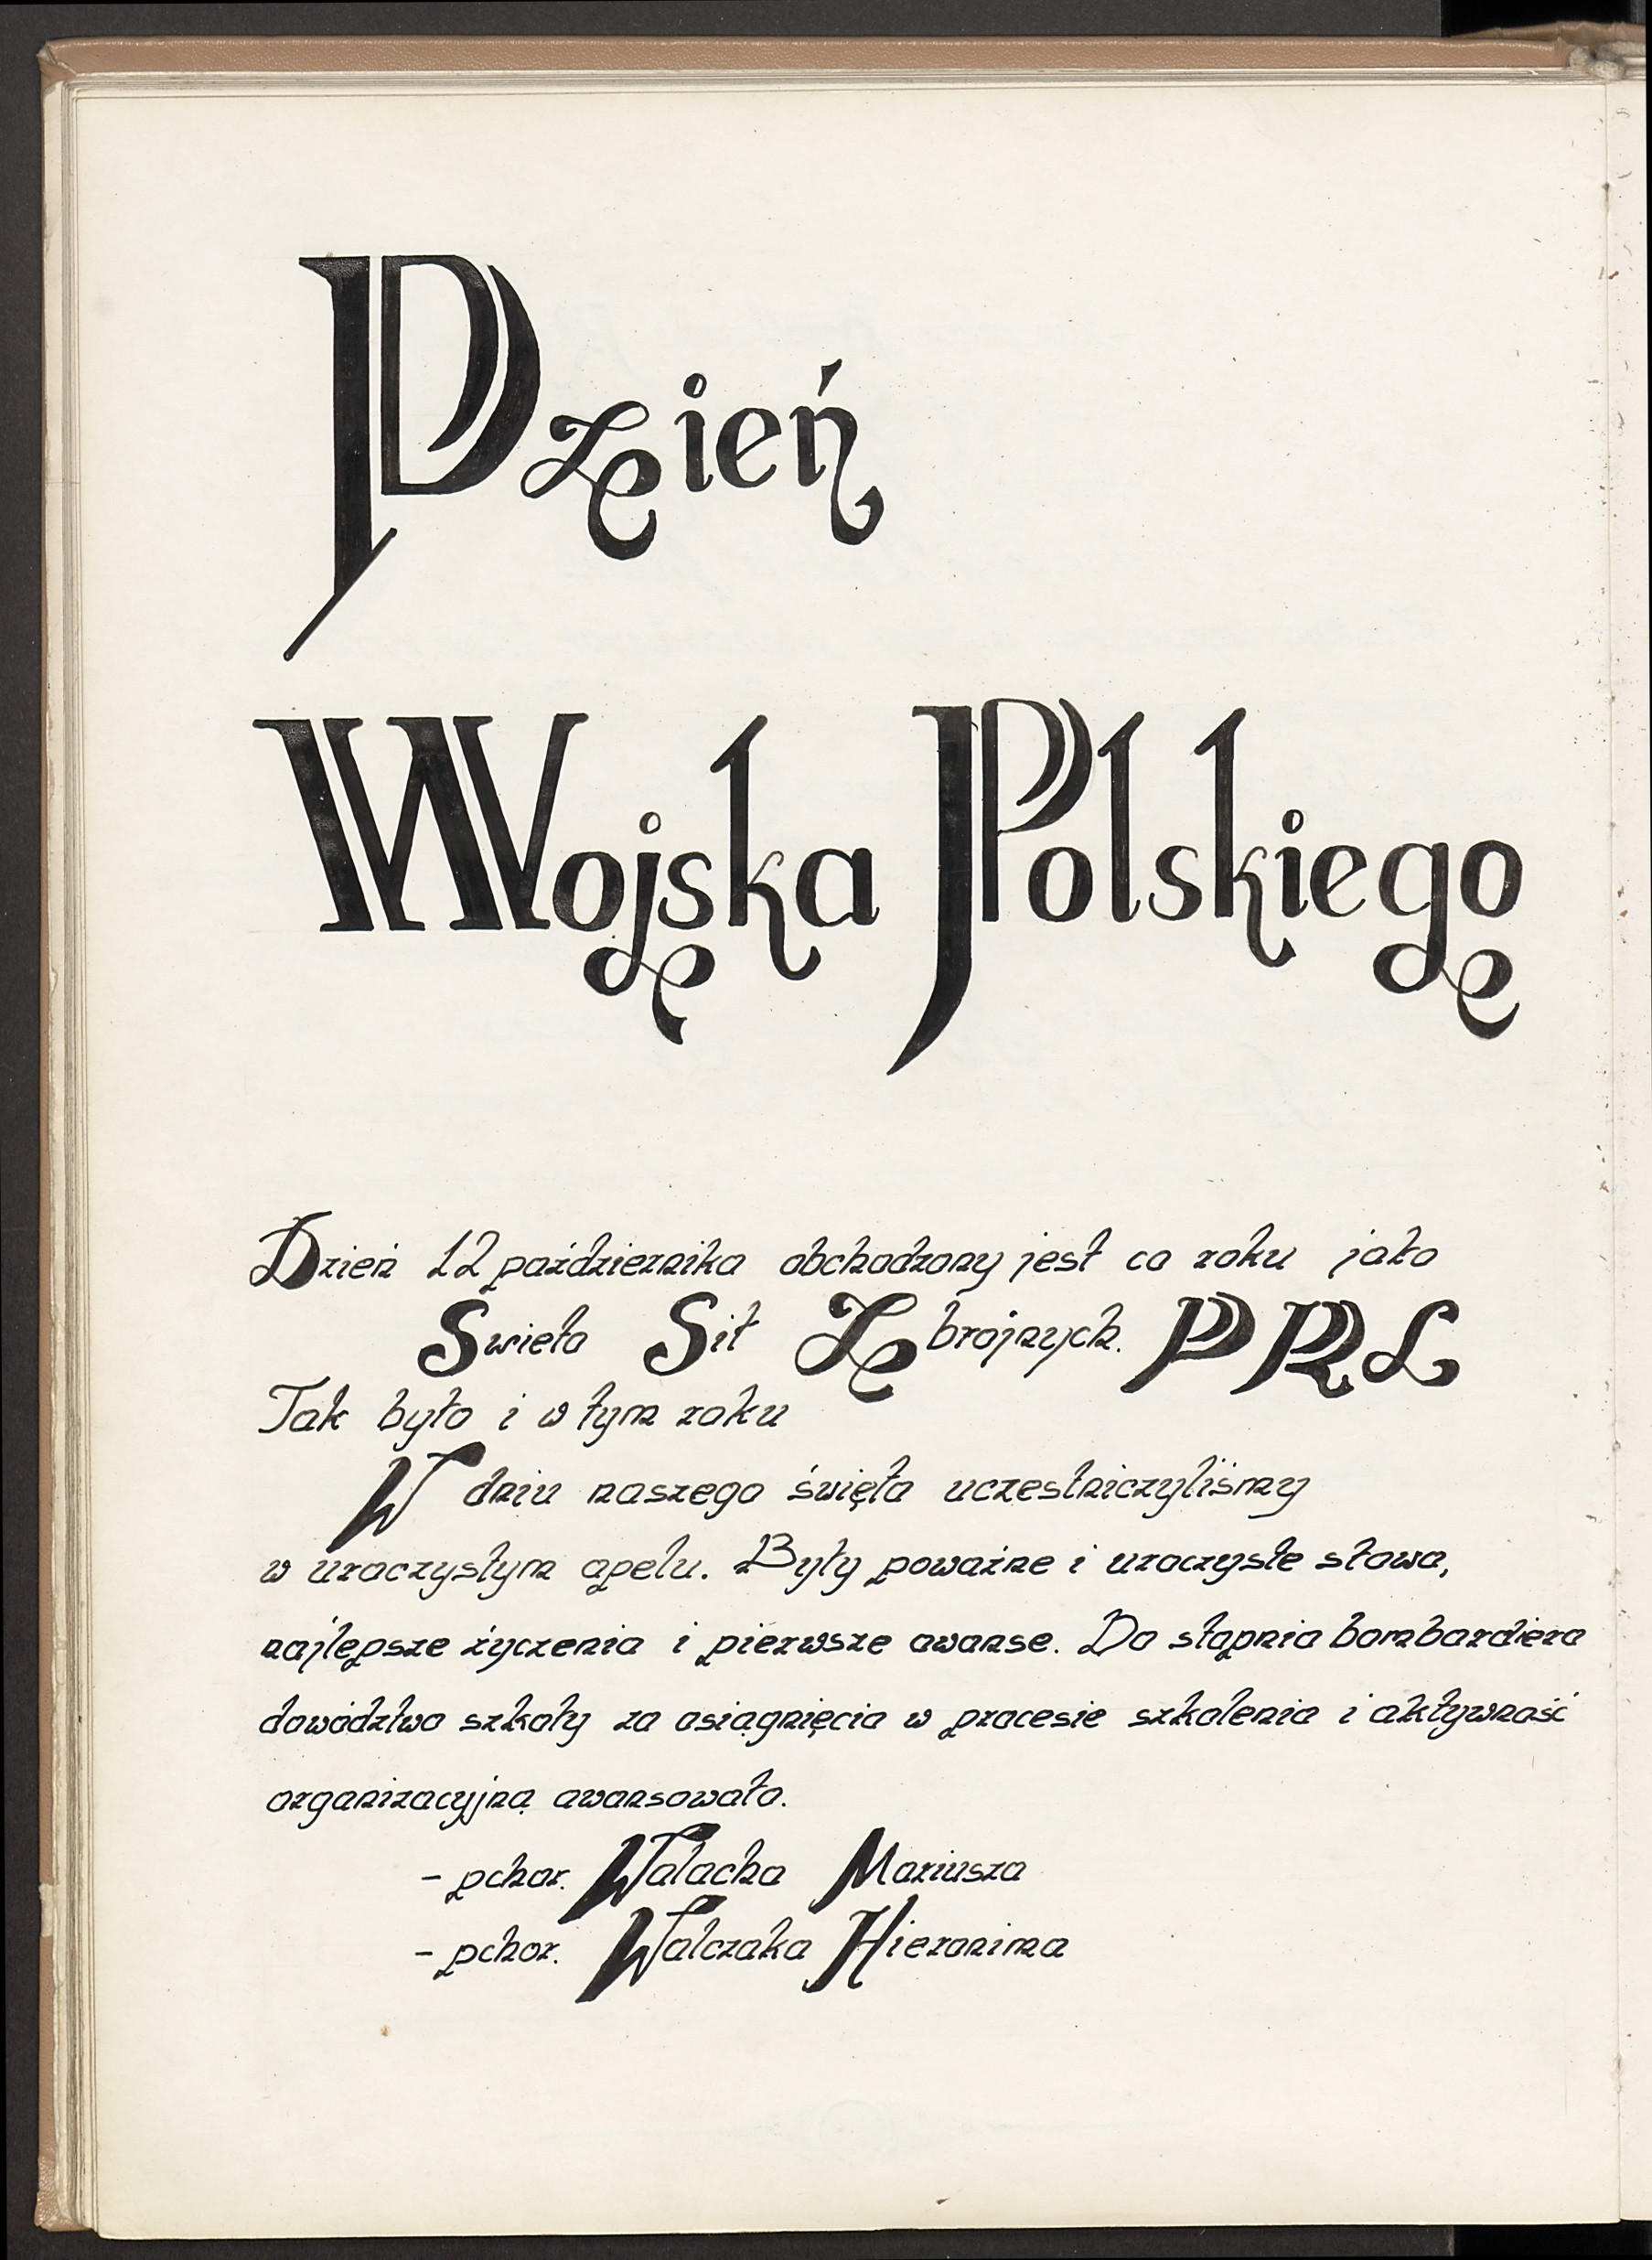 Dzień
Wojska Polskiego
Dzień 12 października obchodzony jest co roku jako
Swięto Sił Zbrojnych. PRL
Tak było i w tym roku
W dniu naszego święta uczestniczyliśmy
w uroczystym apelu. Były poważne i uroczyste słowa,
najlepsze życzenia i pierwsze awanse. Do stopnia bombardiera
dowództwo szkoły za osiągnięcia w procesie szkolenia i aktywność
organizacyjną awansowało.
- pchor. Wałacha Mariusza
- pchor. Walczaka Hieronima